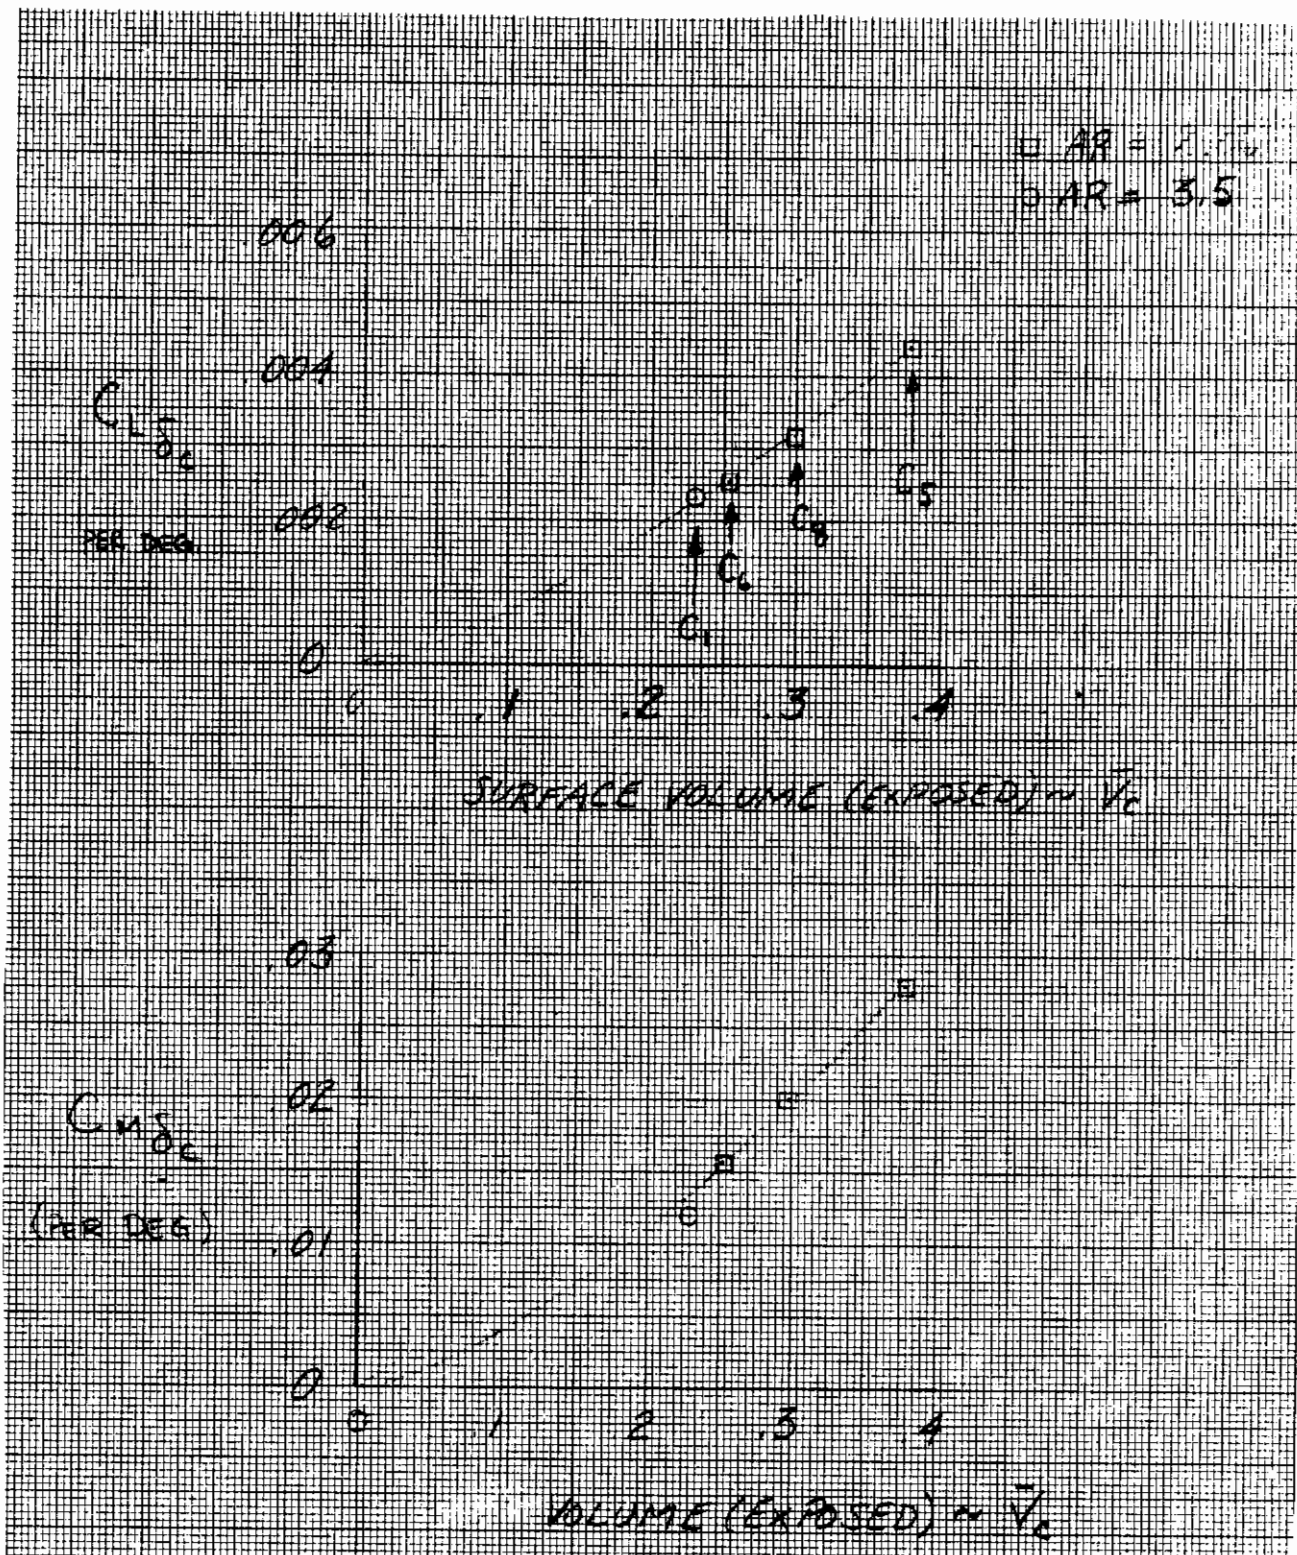 □ AR =
○ AR = 3.5
.006
.004
C_L_δ_c
.002
PER DEG.
C_5
C_8
C_6
C_1
0
0 .1 .2 .3 .4
SURFACE VOLUME (EXPOSED) ~ V̄_c
.03
.02
C_M_δ_c
(PER DEG)
.01
0
0 .1 .2 .3 .4
VOLUME (EXPOSED) ~ V̄_c